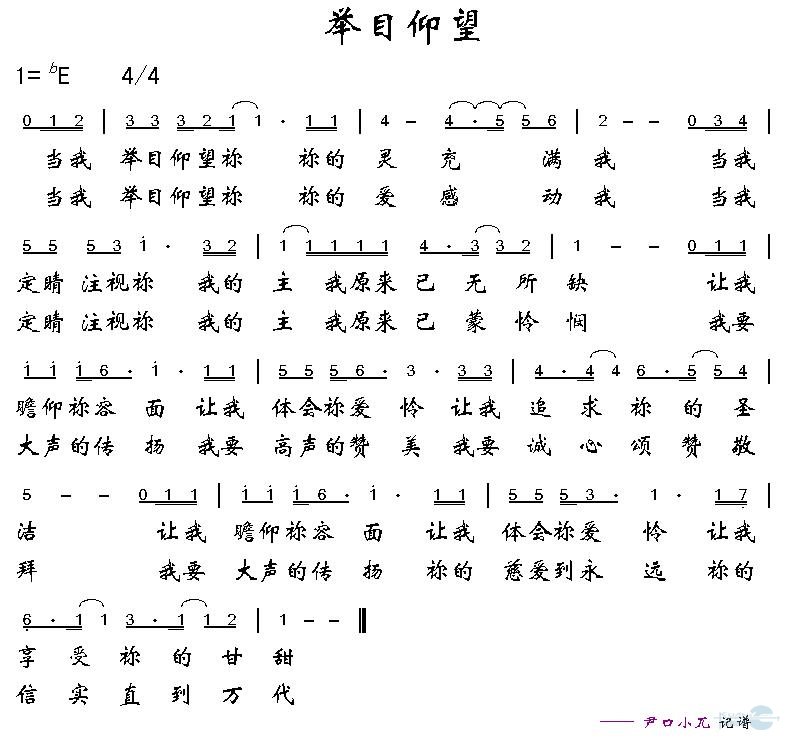 举目仰望
1= bE 4/4
0 1 2 | 3 3 3 2 1 1 · 1 1 | 4 – 4 · 5 5 6 | 2 – – 0 3 4 |
当我 举目仰望祢 祢的 灵 充 满 我 当我
当我 举目仰望祢 祢的 爱 感 动 我 当我
5 5 5 3 i · 3 2 | 1 1 1 1 1 4 · 3 3 2 | 1 – – 0 1 1 |
定睛 注视祢 我的 主 我原来 已 无 所 缺 让我
定睛 注视祢 我的 主 我原来 已 蒙 怜 悯 我要
i i i 6 · i · 1 1 | 5 5 5 6 · 3 · 3 3 | 4 · 4 4 6 · 5 5 4 |
瞻仰祢容 面 让我 体会祢爱 怜 让我 追 求 祢 的 圣
大声的传 扬 我要 高声的赞 美 我要 诚 心 颂 赞 敬
5 – – 0 1 1 | i i i 6 · i · 1 1 | 5 5 5 3 · 1 · 1 7 |
洁 让我 瞻仰祢容 面 让我 体会祢爱 怜 让我
拜 我要 大声的传 扬 祢的 慈爱到永 远 祢的
6 · 1 1 3 · 1 1 2 | 1 – – ‖
享 受 祢 的 甘 甜
信 实 直 到 万 代
—— 尹口小兀 记谱